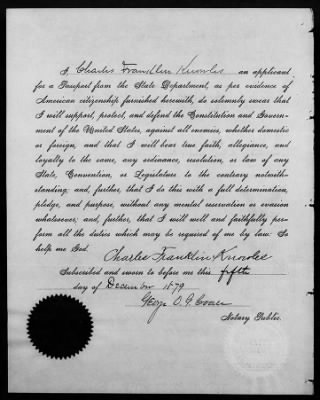 I, Charles Franklin Knowles an applicant
for a Passport from the State Department, as per evidence of
American citizenship furnished herewith, do solemnly swear that
I will support, protect, and defend the Constitution and Govern-
ment of the United States, against all enemies, whether domestic
or foreign, and that I will bear true faith, allegiance, and
loyalty to the same, any ordinance, resolution, or law of any
State, Convention, or Legislature to the contrary notwith-
standing; and, further, that I do this with a full determination,
pledge, and purpose, without any mental reservation or evasion
whatsoever; and, further, that I will well and faithfully per-
form all the duties which may be required of me by law: So
help me God.
Charles Franklin Knowles
Subscribed and sworn to before me this fifth
day of December 1879
O. G.
Notary Public.